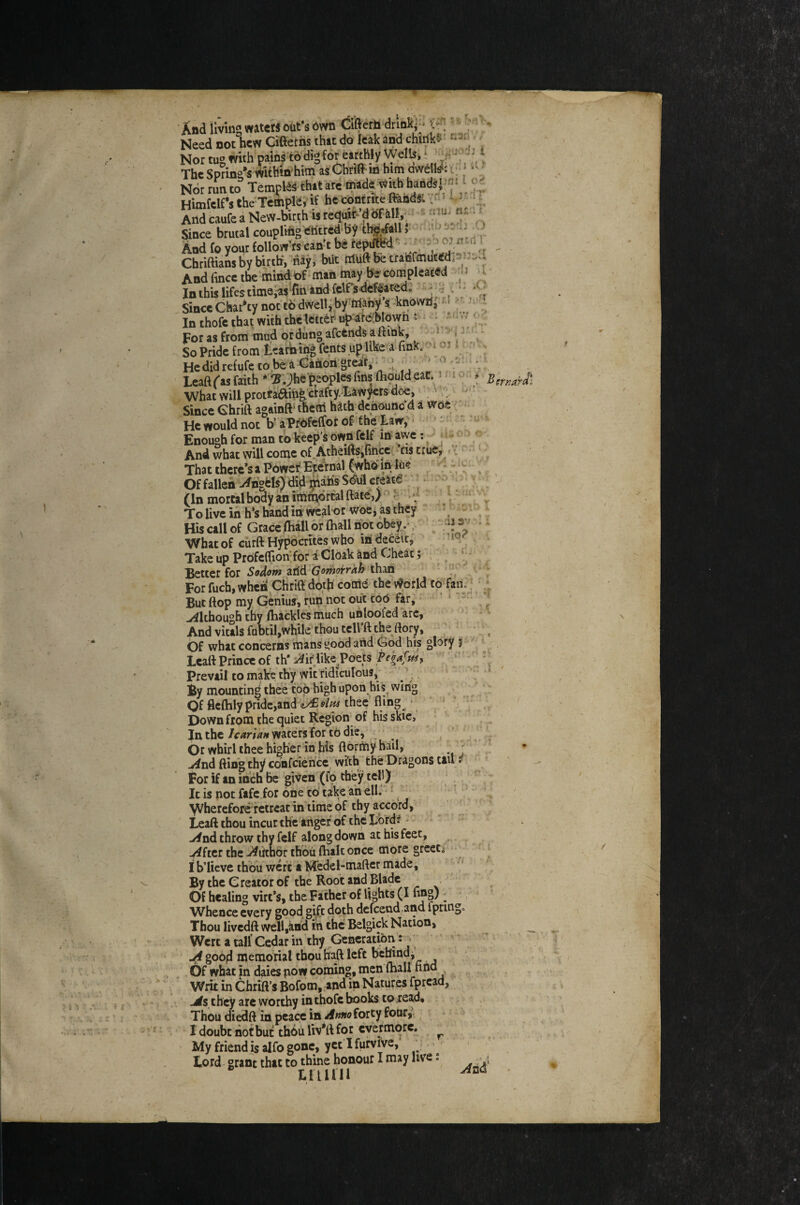 And living waters out's own Cistern drink,
Need not hew Cisterns that do leak and chink:
Nor tug with pains to dig for earthly Wells,
The Spring's within him as Christ in him dwells:
Nor run to Temples that are made with hands;
Himself's the Temple, if he contrite stands.
And cause a New-birth is requir'd of all,
Since brutal coupling entred by the fall;
And so your follow'rs can't be reputed
Christians by birth, nay, but must be transmuted,
And since the mind of man may be compleated
In this lifes time, as sin and self's defeated.
Since Char'ty not to dwell, by many's known,
In those that with the letter up are blown:
For as from mud or dung ascends a stink,
So Pride from Learning sents up like a sink.
He did refuse to be a Canon great,
Least (as saith * B.) he peoples sins should eat. * Bernard.
What will protracting crafty Lawyers doe,
Since Christ against them hath denounc'd a woe
He would not b' a Professor of the Law,
Enough for man to keep's own self in awe:
And what will some of Atheists, since 'tis true,
That there's a Power Eternal (who in lue
Of fallen Angels) did mans Soul create
(In mortal body an immortal state,)
To live in h's hand in weal or woe, as they
His call of Grace shall or shall not obey.
What of curst Hypocrites who in deceit,
Take up Profession for a Cloak and Cheat;
Better for Sodom and Gomorrah than
For such, when Christ doth come the World to fan.
But stop my Genius, run not out too far,
Although thy shackles much unloosed are,
And vitals subtil, while thou tell'st the story,
Of what concerns mans good and God his glory;
Least Prince of th' Air like Poets Pegasus,
Prevail to make thy wit ridiculous,
By mounting thee too high upon his wing
Of fleshly pride, and Æolus thee fling
Down from the quiet Region of his skie,
In the Icarian waters for to die,
Or whirl thee higher in his stormy hail,
And sting thy conscience with the Dragons tail:
For if an inch be given (so they tell)
It is not safe for one to take an ell.
Wherefore retreat in time of thy accord,
Least thou incur the anger of the Lord:
And throw thy self along down at his feet,
After the Author thou shalt once more greet.
I b'lieve thou wert a Medel-master made,
By the Creator of the Root and Blade
Of healing virt's, the Father of lights (I sing)
Whence every good gift doth descend and spring.
Thou livedst well, and in the Belgick Nation,
Wert a tall Cedar in thy Generation:
A good memorial thou hast left behind,
Of what in daies now coming, men shall find
Writ in Christ's Bosom, and in Natures spread,
As they are worthy in those books to read.
Thou diedst in peace in Anno forty four,
I doubt not but thou liv'st for evermore.
My friend is also gone, yet I survive,
Lord grant that to thine honour I may live:
Lllllll And